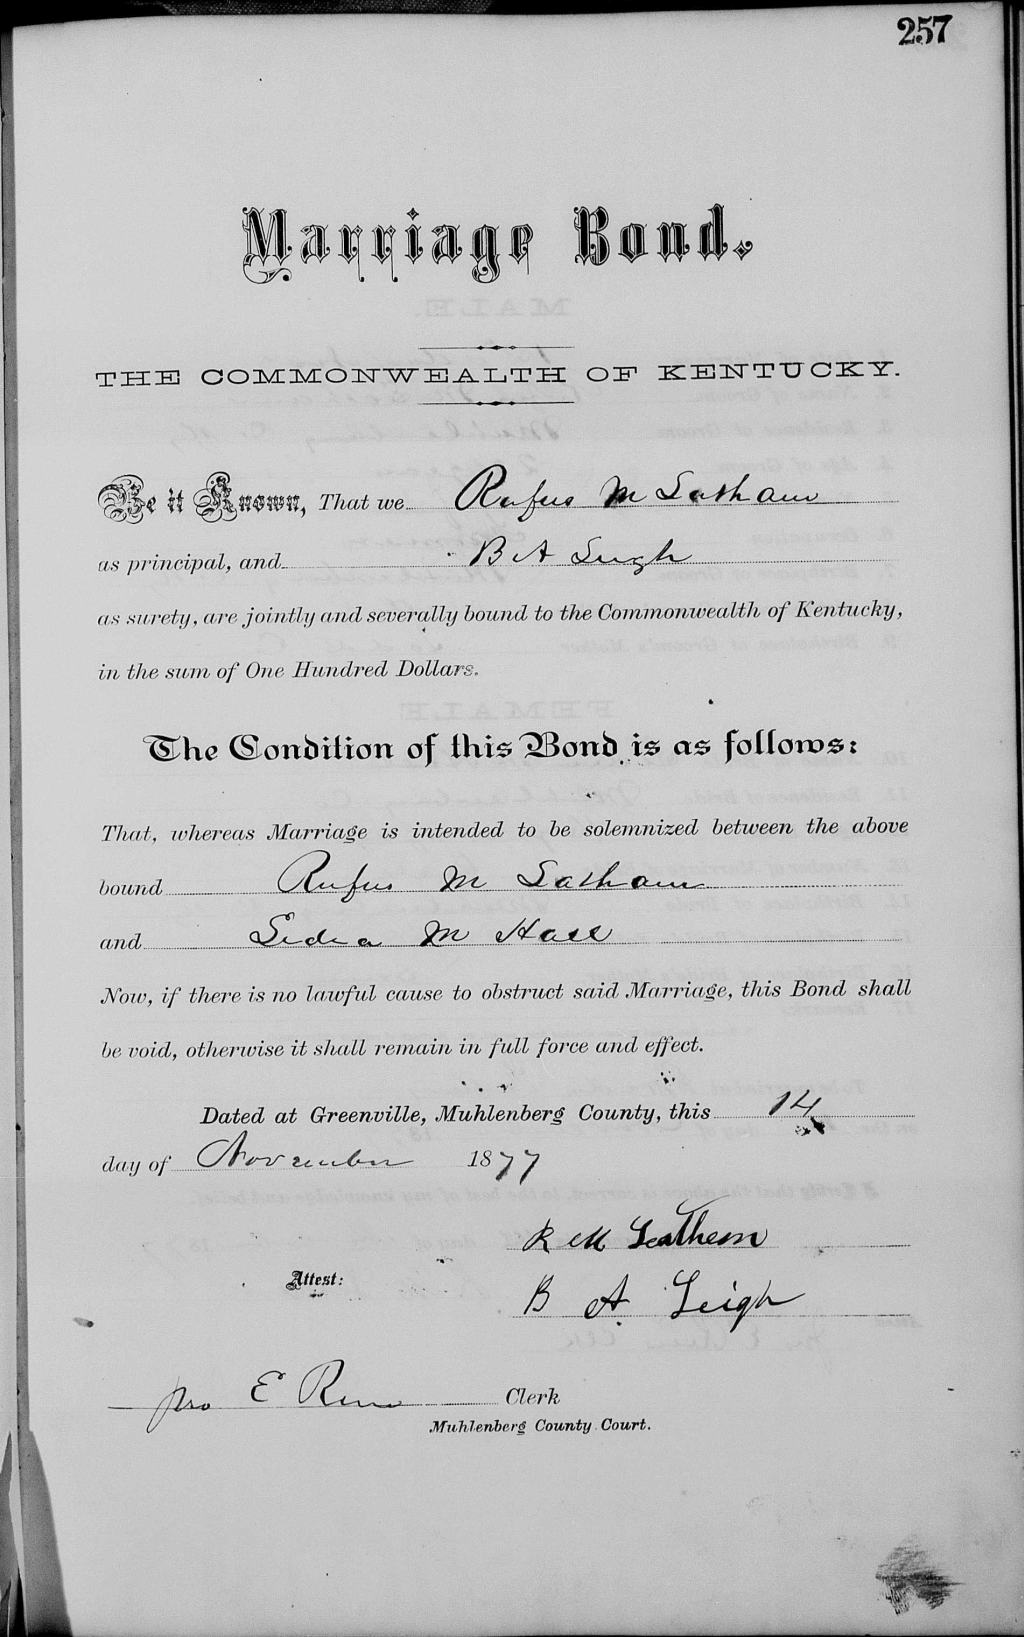 257
Marriage Bond.
THE COMMONWEALTH OF KENTUCKY.
Be it Known, That we Rufus M Latham
as principal, and B A Leigh
as surety, are jointly and severally bound to the Commonwealth of Kentucky,
in the sum of One Hundred Dollars.
The Condition of this Bond is as follows:
That, whereas Marriage is intended to be solemnized between the above
bound Rufus M Latham
and Ledia M Hall
Now, if there is no lawful cause to obstruct said Marriage, this Bond shall
be void, otherwise it shall remain in full force and effect.
Dated at Greenville, Muhlenberg County, this 14
day of November 1877
R M Leathem
Attest:
B A Leigh
Jno E Reno Clerk
Muhlenberg County Court.